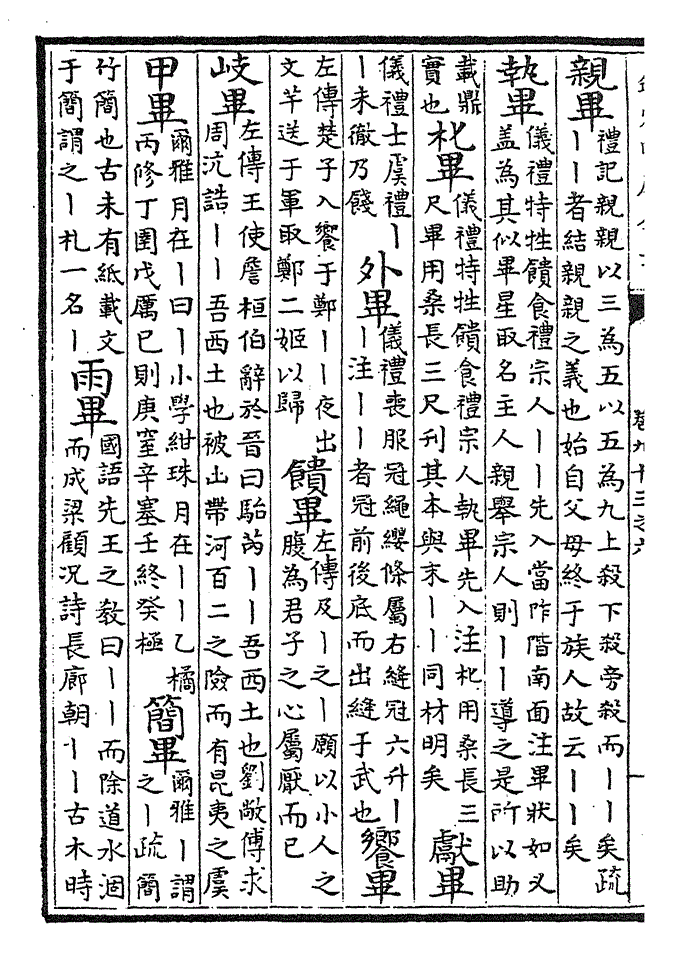 卷九十三之六
親畢
禮記親親以三為五以五為九上殺下殺旁殺而丨丨矣疏
丨丨者結親親之義也始自父母終于族人故云丨丨矣
執畢
儀禮特牲饋食禮宗人丨丨先入當阼階南面注畢狀如乂
盖為其似畢星取名主人親舉宗人則丨丨導之是所以助
載鼎
實也
朼畢
儀禮特牲饋食禮宗人執畢先入注朼用桑長三
尺畢用桑長三尺刋其本與末丨丨同材明矣
獻畢
儀禮士虞禮丨
丨未徹乃餞
外畢
儀禮喪服冠繩纓條屬右縫冠六升丨
丨注丨丨者冠前後底而出縫于武也
饗畢
左傳楚子入饗于鄭丨丨夜出
文芊送于軍取鄭二姬以歸
饋畢
左傳及丨之丨願以小人之
腹為君子之心屬厭而已
岐畢
左傳王使詹桓伯辭於晉曰駘芮丨丨吾西土也劉敞傅求
周沆誥丨丨吾西土也被山帶河百二之險而有昆夷之虞
甲畢
爾雅月在丨曰丨小學紺珠月在丨丨乙橘
丙修丁圉戊厲已則庚窒辛塞壬終癸極
簡畢
爾雅丨謂
之丨疏簡
竹簡也古未有紙載文
于簡謂之丨札一名丨
雨畢
國語先王之教曰丨丨而除道水涸
而成梁顧况詩長廊朝丨丨古木時